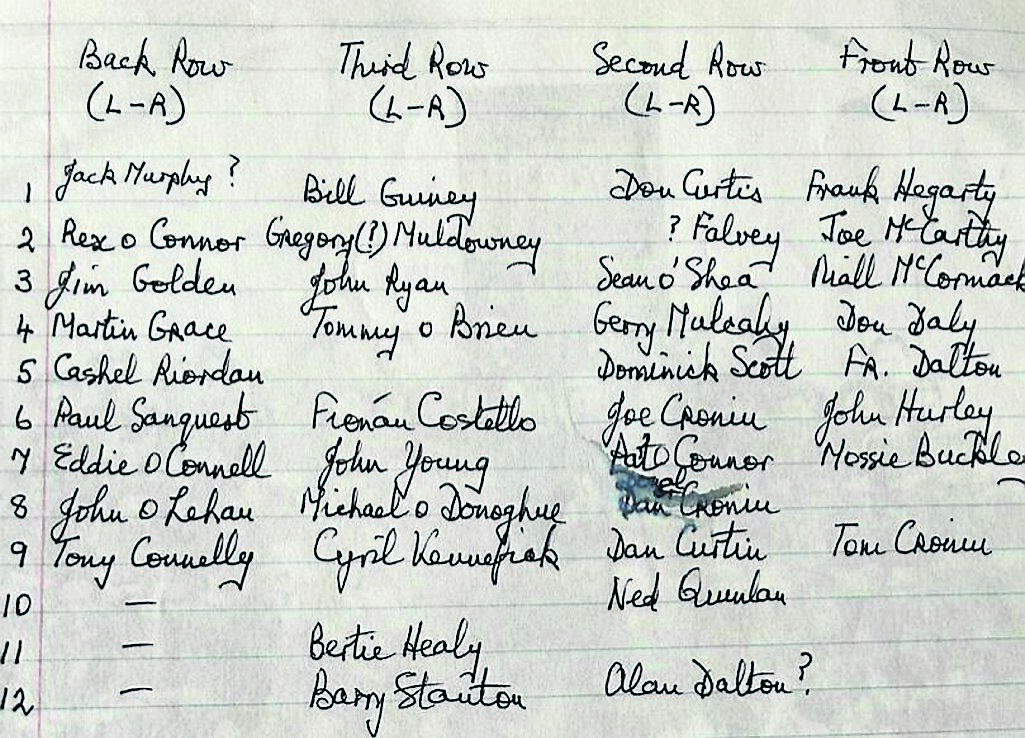 Back Row Third Row Second Row Front Row
(L-R) (L-R) (L-R) (L-R)
1 Jack Murphy? Bill Guiney Don Curtis Frank Hegarty
2 Rex o Connor Gregory(?) Muldowney ? Falvey Joe McCarthy
3 Jim Golden John Ryan Sean o'Shea Niall McCormack
4 Martin Grace Tommy o Brien Gerry Mulcahy Don Daly
5 Cashel Riordan Dominick Scott Fr. Dalton
6 Paul Sanquest Fionán Costello Joe Cronin John Hurley
7 Eddie O Connell John Young Pat O Connor Mossie Buckle
8 John O Lehan Michael o Donoghue Dan Cronin
9 Tony Connelly Cyril Dan Curtin Tom Cronin
10 — Ned Quinlan
11 — Bertie Healy
12 — Barry Stanton Alan Dalton?